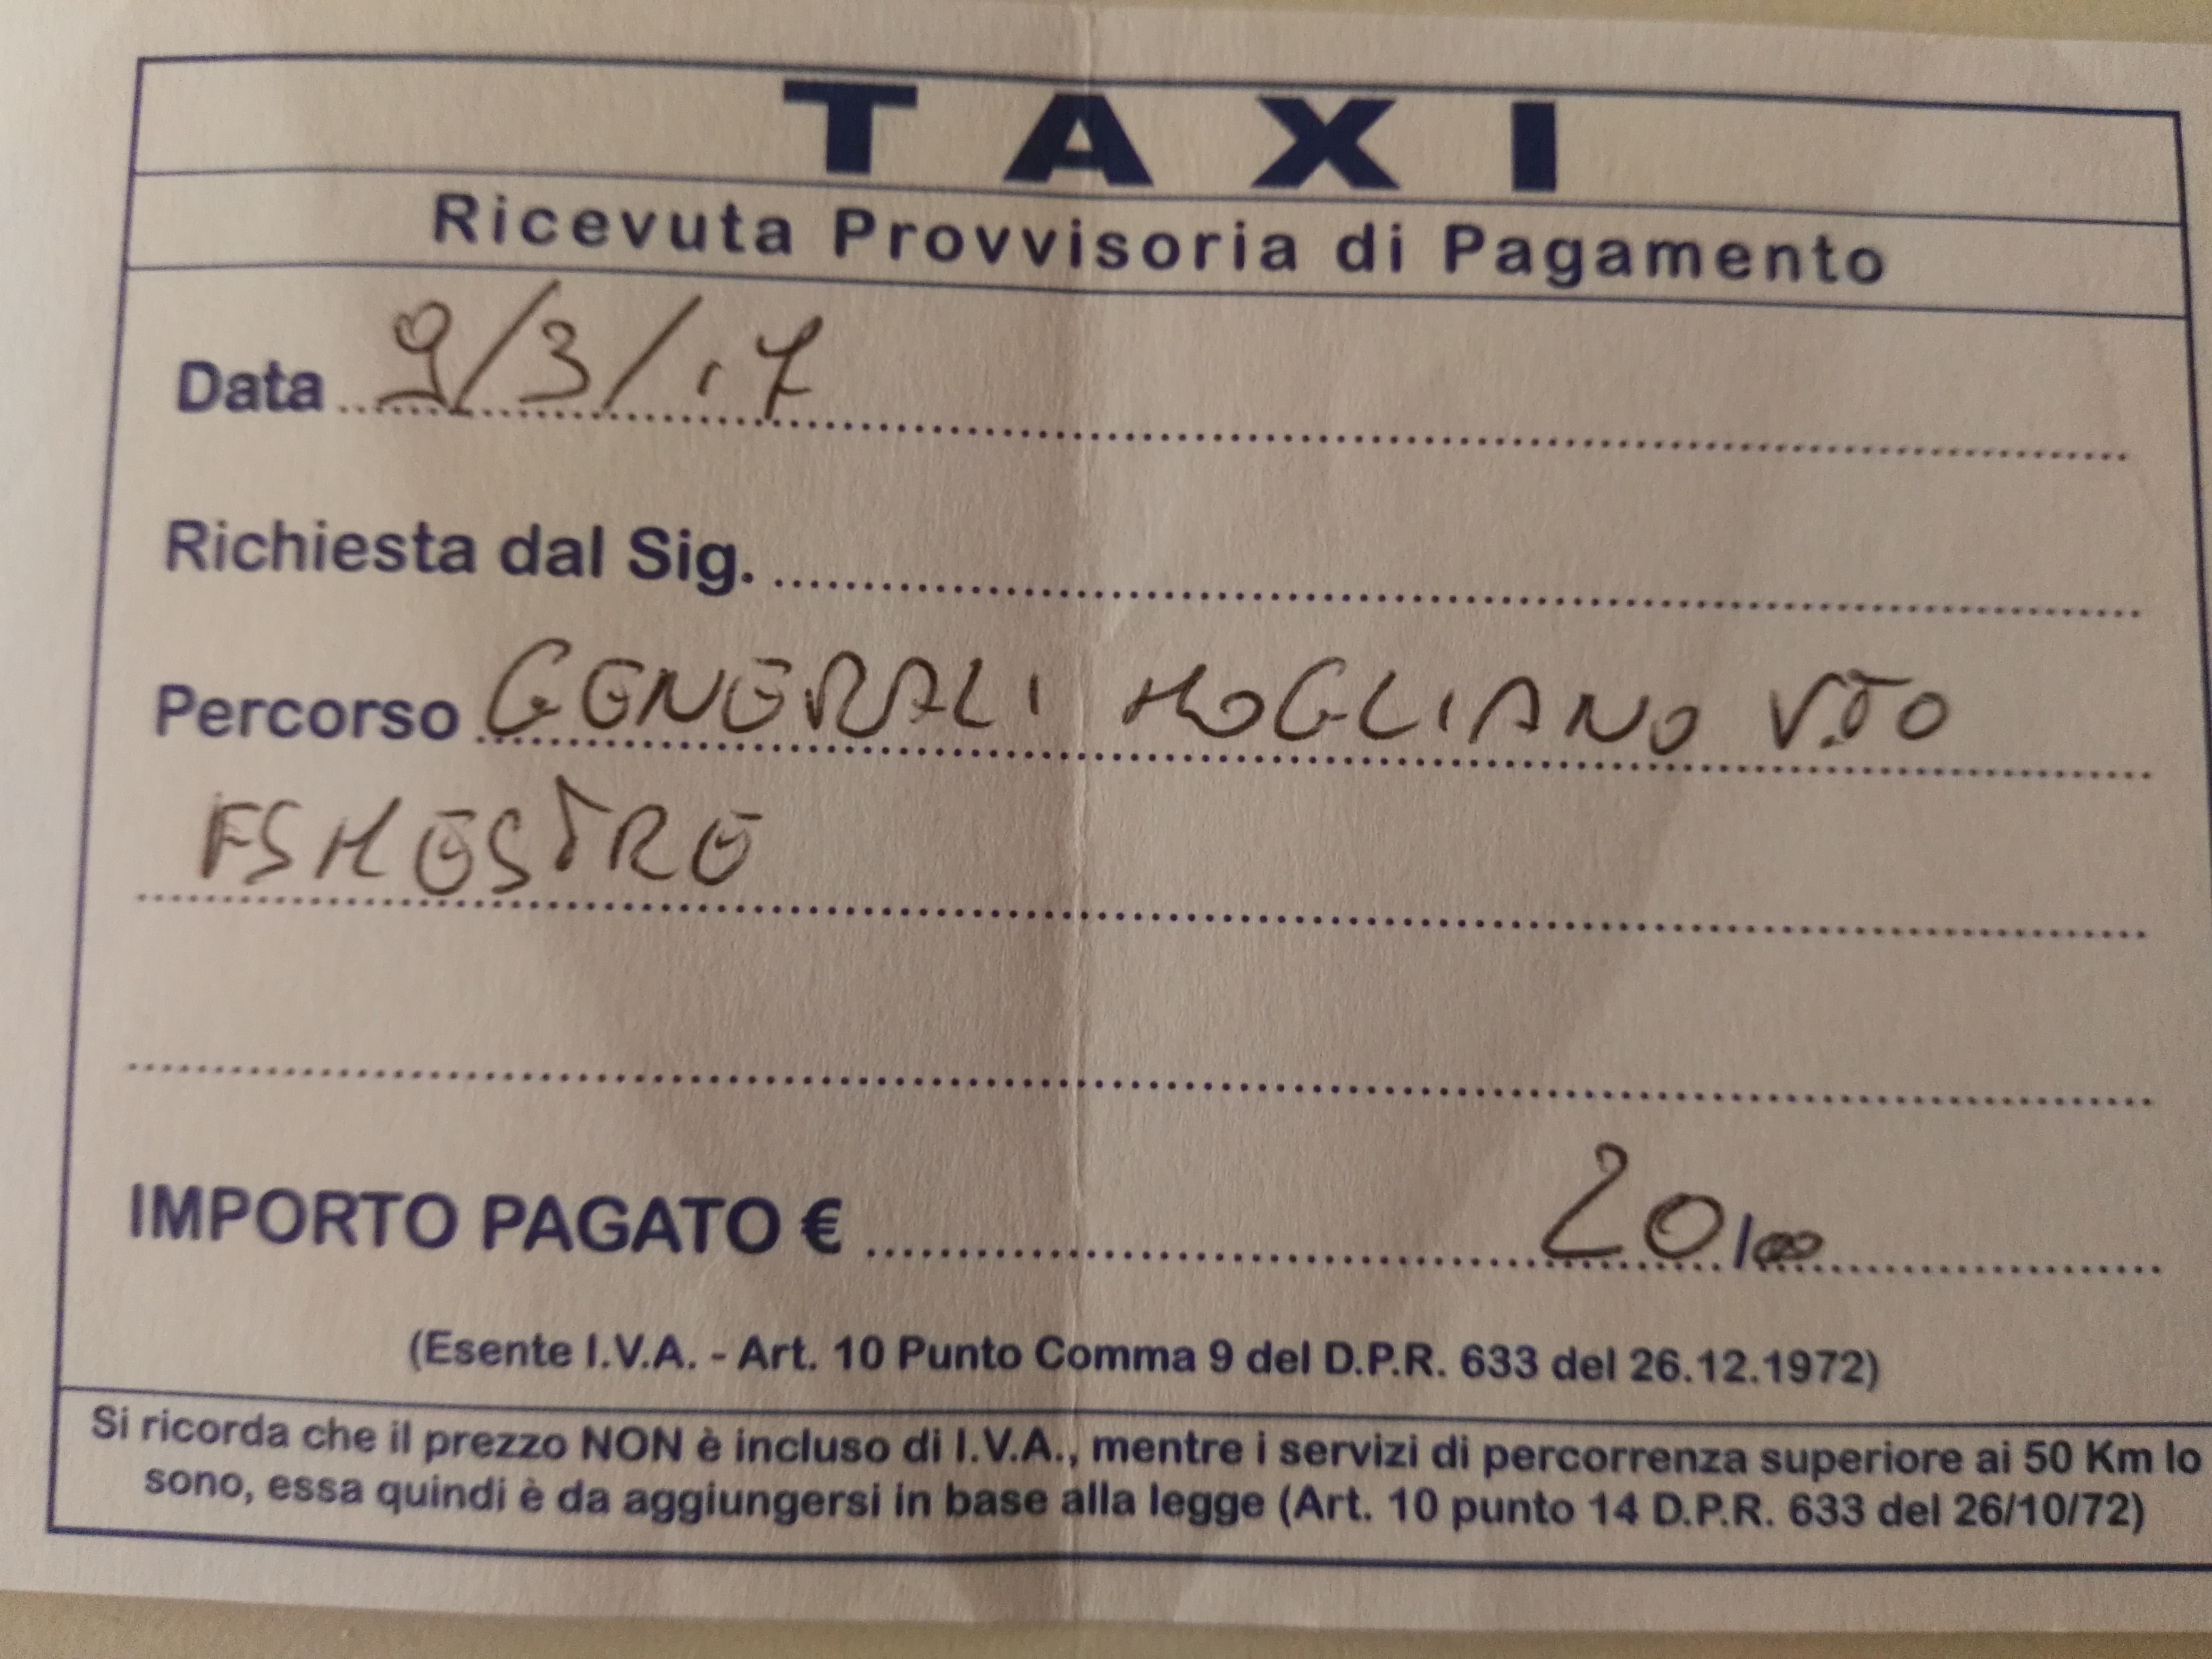 TAXI
Ricevuta Provvisoria di Pagamento
Data 9/3/17
Richiesta dal Sig.
Percorso GENERALI MOGLIANO V.TO
FS MESTRE
IMPORTO PAGATO € 20,00
(Esente I.V.A. - Art. 10 Punto Comma 9 del D.P.R. 633 del 26.12.1972)
Si ricorda che il prezzo NON è incluso di I.V.A., mentre i servizi di percorrenza superiore ai 50 Km lo
sono, essa quindi è da aggiungersi in base alla legge (Art. 10 punto 14 D.P.R. 633 del 26/10/72)